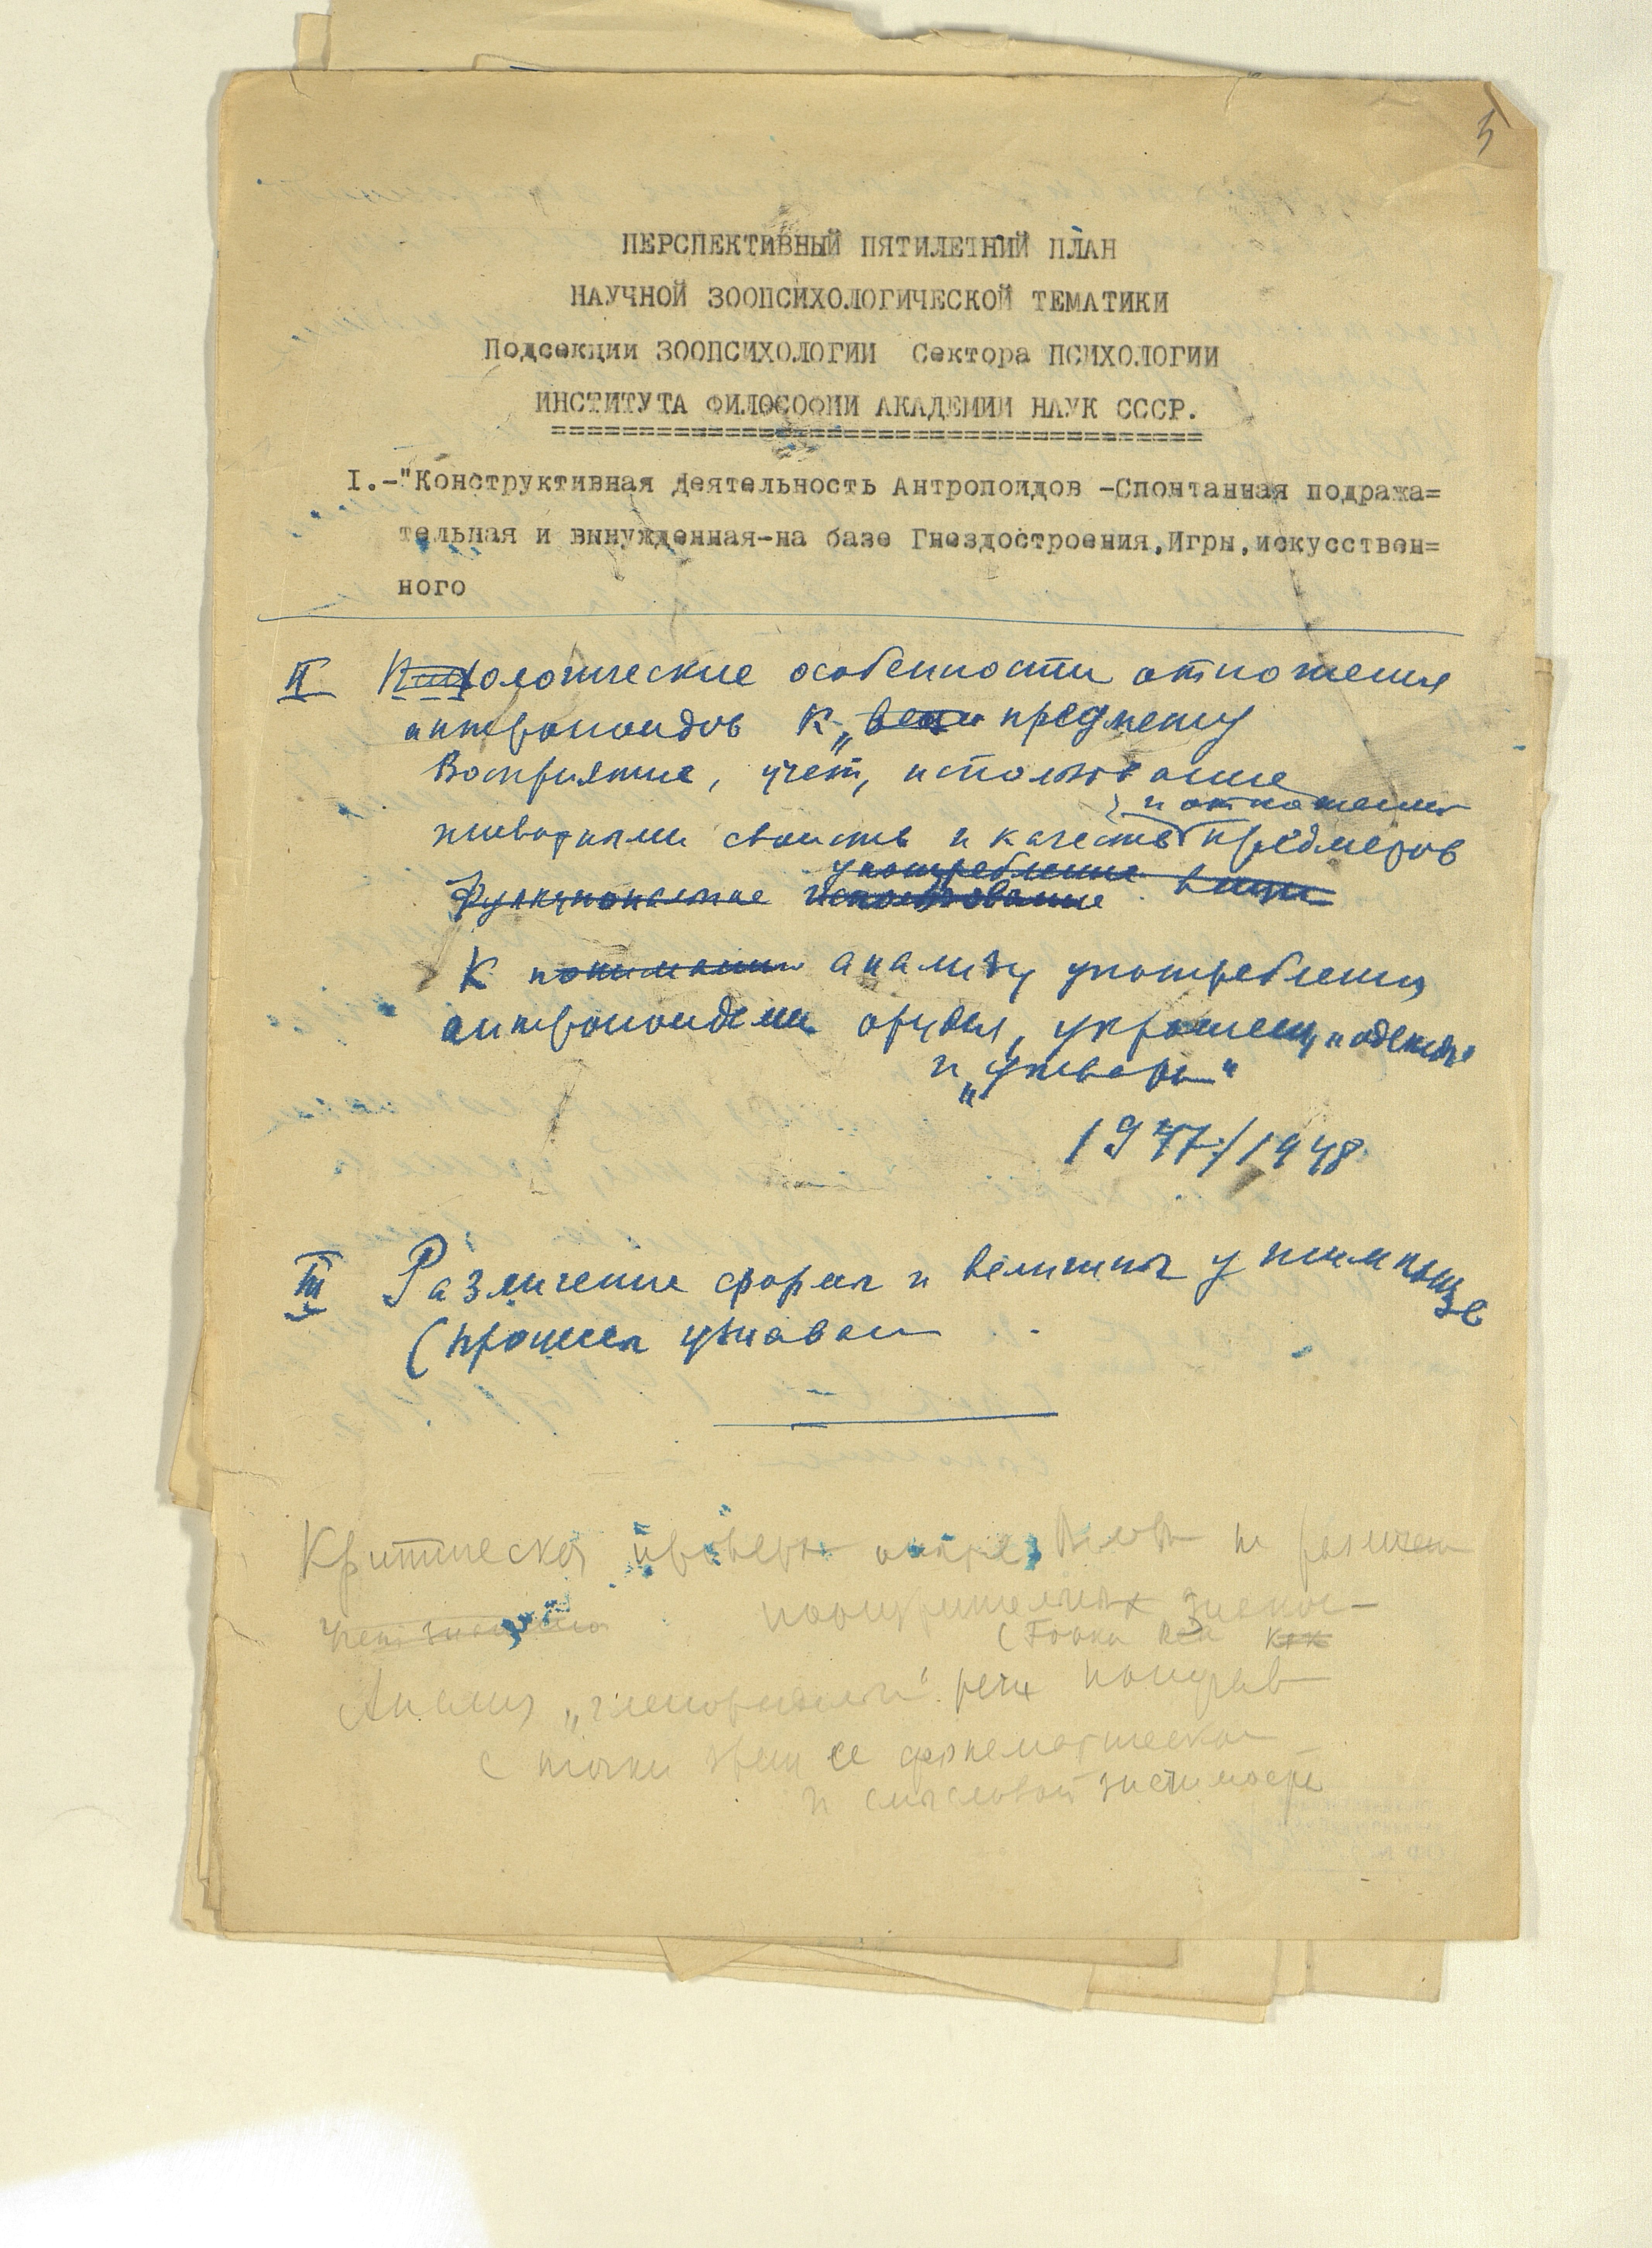 5
ПЕРСПЕКТИВНЫЙ ПЯТИЛЕТНИЙ ПЛАН
НАУЧНОЙ ЗООПСИХОЛОГИЧЕСКОЙ ТЕМАТИКИ
Подсекции ЗООПСИХОЛОГИИ Сектора ПСИХОЛОГИИ
ИНСТИТУТА ФИЛОСОФИИ АКАДЕМИИ НАУК СССР.
I.-"Конструктивная Деятельность Антропоидов -Спонтанная подража=
тельная и вынужденная-на базе Гнездостроения,Игры,искусствен=
ного
II особенности отношения
антропоидов к предмету
Восприятие, учет, использование
и отношения
животными свойств и качеств предметов
Функциональное использование
употребление вещи
К понимани анализу употребления
антропоидами орудия, украшен,
и „утвари"
1947/1948
III Различение форм и величины у шимпанзе
(процесс узнаван
Критическая
Анализ речи попугаев
с точки зрен ее фонематическо
и смысловой значимости